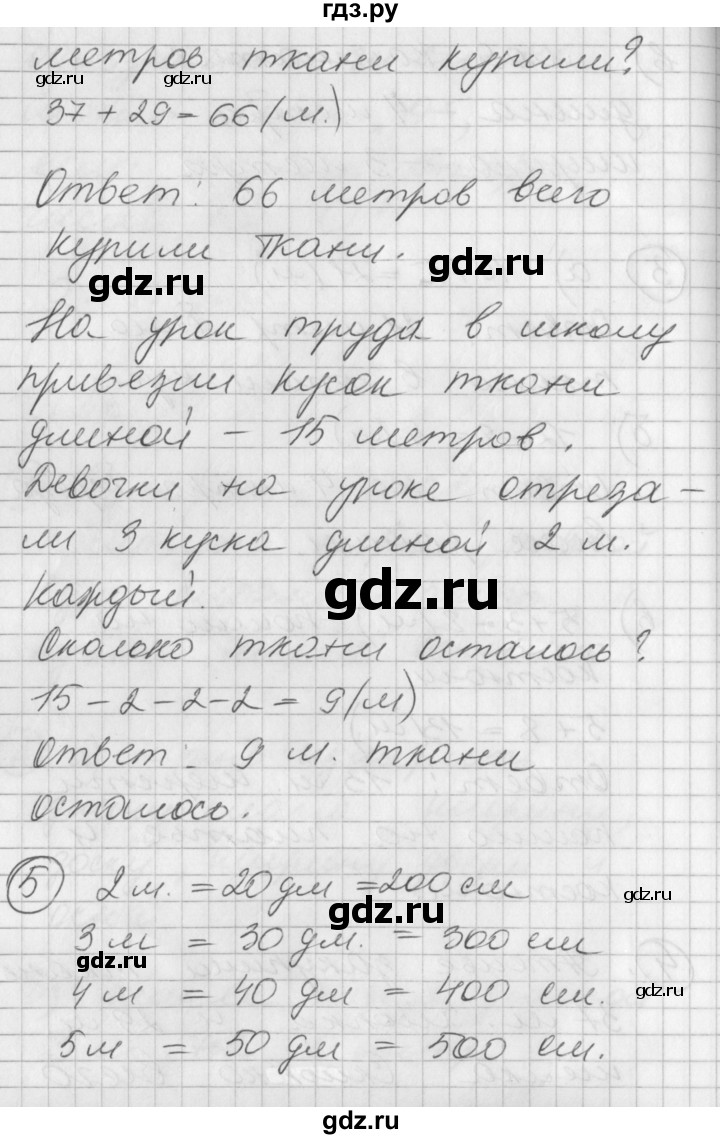 гдз.ру
метров ткани купили?
gdz.ru gdz.ru
37 + 29 = 66 (м.)
Ответ: 66 метров всего
купили ткани.
gdz.ru gdz.ru
На урок труда в школу
привезли кусок ткани
длиной – 15 метров.
Девочки на уроке отреза –
ли 3 куска длиной 2 м.
каждый.
gdz.ru
Сколько ткани осталось?
15 – 2 – 2 – 2 = 9 (м)
Ответ: 9 м. ткани
осталось.
5 2 м. = 20 дм = 200 см
gdz.ru gdz.ru
3 м = 30 дм. = 300 см
gdz.ru
4 м = 40 дм = 400 см.
gdz.ru
5 м = 50 дм = 500 см.
gdz.ru